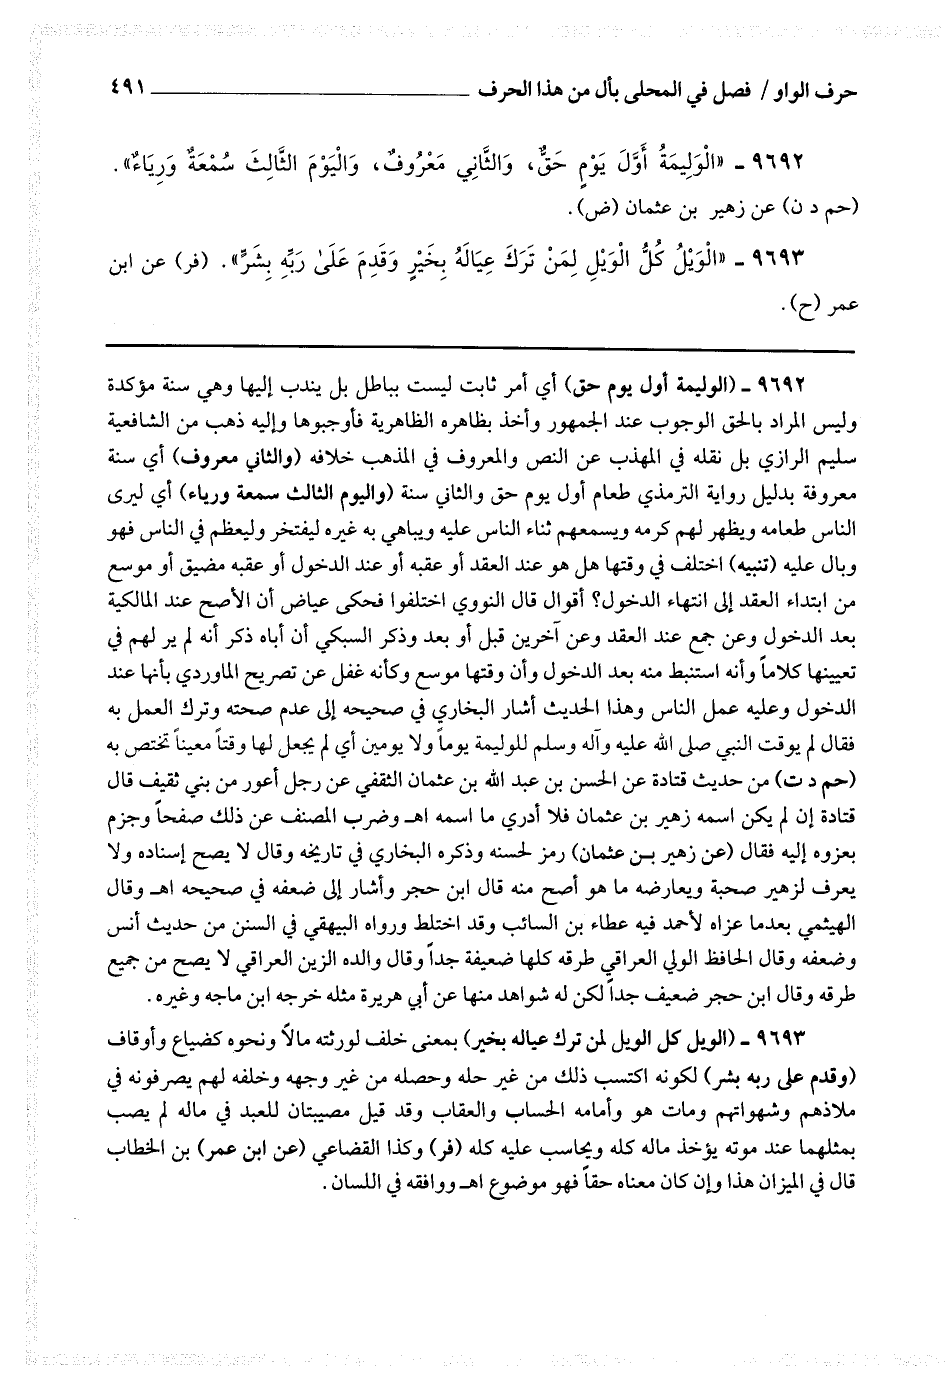 حرف الواو / فصل في المحلى بأل من هذا الحرف ٤٩١
٩٦٩٢ ـ «الْوَلِيمَةُ أَوَّلَ يَوْمٍ حَقٌّ، وَالثَّانِي مَعْرُوفٌ، وَالْيَوْمَ الثَّالِثَ سُمْعَةٌ وَرِيَاءٌ».
(حم د ن) عن زهير بن عثمان (ض).
٩٦٩٣ ـ «الْوَيْلُ كُلُّ الْوَيْلِ لِمَنْ تَرَكَ عِيَالَهُ بِخَيْرٍ وَقَدِمَ عَلَىٰ رَبِّهِ بِشَرٍّ». (فر) عن ابن
عمر (ح).
٩٦٩٢ ـ (الوليمة أول يوم حق) أي أمر ثابت ليست بباطل بل يندب إليها وهي سنة مؤكدة
وليس المراد بالحق الوجوب عند الجمهور وأخذ بظاهره الظاهرية فأوجبوها وإليه ذهب من الشافعية
سليم الرازي بل نقله في المهذب عن النص والمعروف في المذهب خلافه (والثاني معروف) أي سنة
معروفة بدليل رواية الترمذي طعام أول يوم حق والثاني سنة (واليوم الثالث سمعة ورياء) أي ليرى
الناس طعامه ويظهر لهم كرمه ويسمعهم ثناء الناس عليه ويباهي به غيره ليفتخر وليعظم في الناس فهو
وبال عليه (تنبيه) اختلف في وقتها هل هو عند العقد أو عقبه أو عند الدخول أو عقبه مضيق أو موسع
من ابتداء العقد إلى انتهاء الدخول؟ أقوال قال النووي اختلفوا فحكى عياض أن الأصح عند المالكية
بعد الدخول وعن جمع عند العقد وعن آخرين قبل أو بعد وذكر السبكي أن أباه ذكر أنه لم ير لهم في
تعيينها كلاماً وأنه استنبط منه بعد الدخول وأن وقتها موسع وكأنه غفل عن تصريح الماوردي بأنها عند
الدخول وعليه عمل الناس وهذا الحديث أشار البخاري في صحيحه إلى عدم صحته وترك العمل به
فقال لم يوقت النبي صلى الله عليه وآله وسلم للوليمة يوماً ولا يومين أي لم يجعل لها وقتاً معيناً تختص به
(حم د ت) من حديث قتادة عن الحسن بن عبد الله بن عثمان الثقفي عن رجل أعور من بني ثقيف قال
قتادة إن لم يكن اسمه زهير بن عثمان فلا أدري ما اسمه اهـ وضرب المصنف عن ذلك صفحاً وجزم
بعزوه إليه فقال (عن زهير بـن عثمان) رمز لحسنه وذكره البخاري في تاريخه وقال لا يصح إسناده ولا
يعرف لزهير صحبة ويعارضه ما هو أصح منه قال ابن حجر وأشار إلى ضعفه في صحيحه اهـ وقال
الهيثمي بعدما عزاه لأحمد فيه عطاء بن السائب وقد اختلط ورواه البيهقي في السنن من حديث أنس
وضعفه وقال الحافظ الولي العراقي طرقه كلها ضعيفة جداً وقال والده الزين العراقي لا يصح من جميع
طرقه وقال ابن حجر ضعيف جداً لكن له شواهد منها عن أبي هريرة مثله خرجه ابن ماجه وغيره.
٩٦٩٣ ـ (الويل كل الويل لمن ترك عياله بخير) بمعنى خلف لورثته مالاً ونحوه كضياع وأوقاف
(وقدم على ربه بشر) لكونه اكتسب ذلك من غير حله وحصله من غير وجهه وخلفه لهم يصرفونه في
ملاذهم وشهواتهم ومات هو وأمامه الحساب والعقاب وقد قيل مصيبتان للعبد في ماله لم يصب
بمثلهما عند موته يؤخذ ماله كله ويحاسب عليه كله (فر) وكذا القضاعي (عن ابن عمر) بن الخطاب
قال في الميزان هذا وإن كان معناه حقاً فهو موضوع اهـ ووافقه في اللسان.